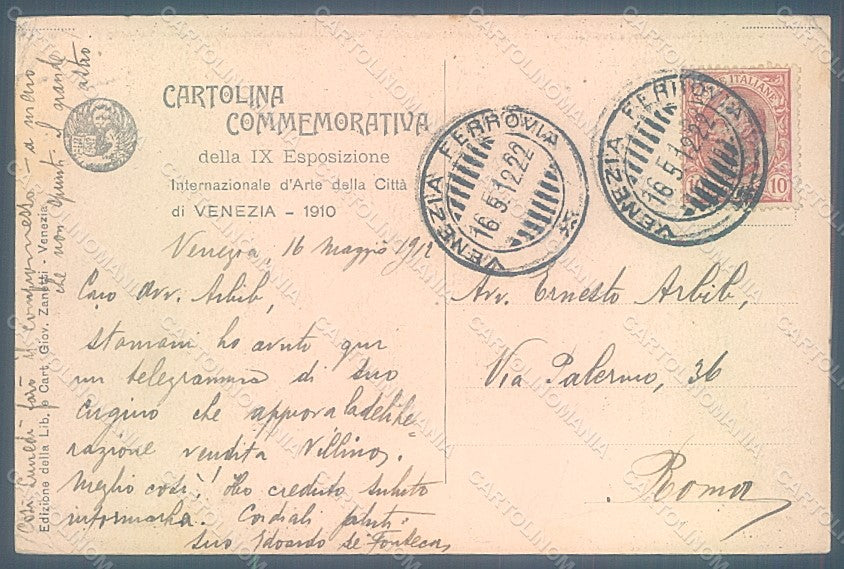 CARTOLINA
COMMEMORATIVA
della IX Esposizione
Internazionale d'Arte della Città
di VENEZIA - 1910
Venezia, 16 maggio 1912
Caro Avv. Arbib,
stamani ho avuto qui
un telegramma di suo
cugino che approva la delibe=
razione vendita Villino.
Meglio così! Ho creduto subito
informarla. Cordiali saluti
suo Edoardo de Fonseca
Così lunedì farò il compromesso - a meno
che non spunti il grande
altro.
Edizione della Lib. e Cart. Giov. Zanetti - Venezia
VENEZIA FERROVIA
16.5.12.22
VENEZIA FERROVIA
16.5.12.22
POSTE ITALIANE
10
Avv. Ernesto Arbib,
Via Palermo, 36
Roma
CARTOLINOMANIA